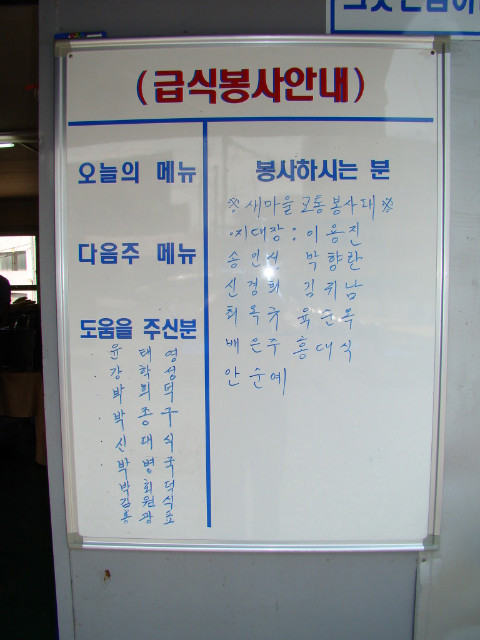 (급식봉사안내)
오늘의 메뉴
다음주 메뉴
도움을 주신분
윤태영
강학성
박희덕
박종구
신대식
박병국
박회덕
김원식
홍광표
봉사하시는 분
※새마을 교통봉사대※
·지대장 : 이용진
송인성 박향란
신경희 김귀남
최옥규 육순옥
배은주 홍대식
안순예